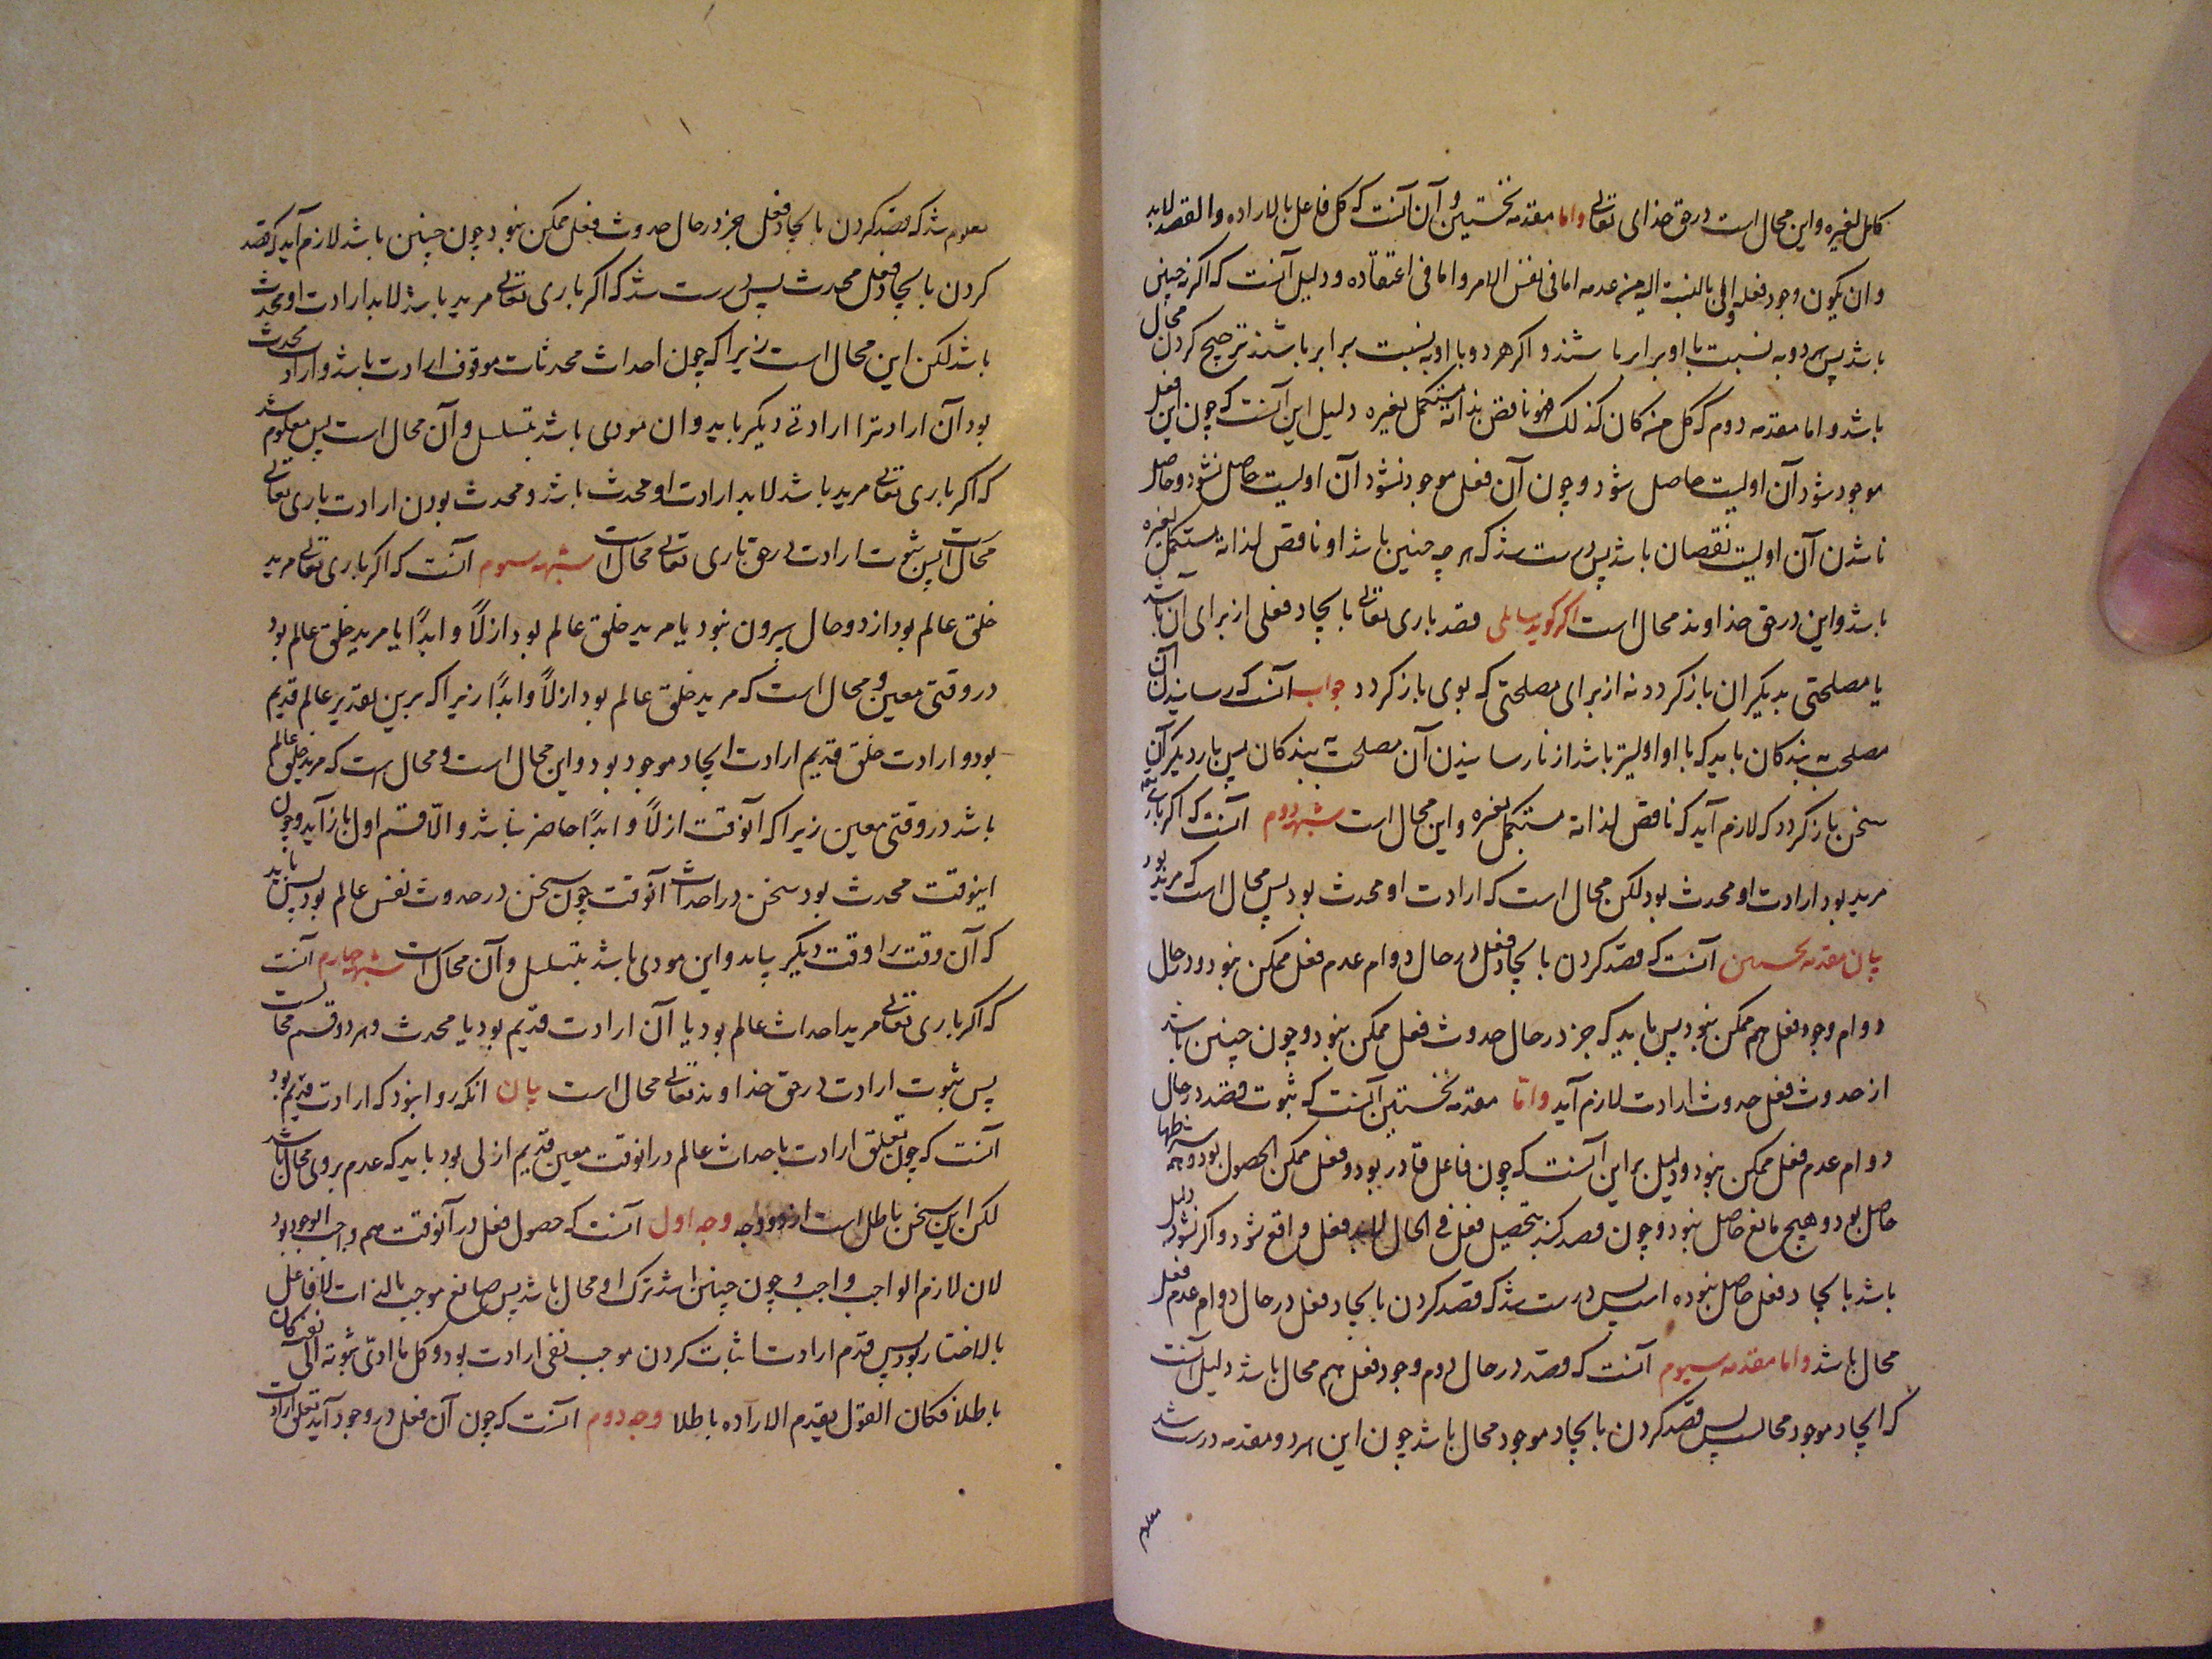 کامل لغیره و این محال است در حق خدای تعالی واما مقدمه نخستین و آن آنست که کل فاعل بالاراده والقصد لابد
وان یکون وجود فعله اولی بالنسبة الیه من عدمه اما فی نفس الامر واما فی اعتقاده و دلیل آنست که اگر نه چنین
باشد پس هر دو به نسبت با او برابر باشند و اگر هر دو با او به نسبت برابر باشند ترجیح کردن محال
باشد واما مقدمه دوم که کل من کان کذلک فهو ناقص بذاته مستکمل بغیره دلیل این آنست که چون این فعل
موجود شود آن اولیت حاصل شود و چون آن فعل موجود نشود آن اولیت حاصل نشود و حاصل
ناشدن آن اولیت نقصان باشد پس درست شد که هر چه چنین باشد او ناقص لذاته مستکمل بغیره
باشد و این در حق خداوند محال است اگر گوید سایلی قصد باری تعالی بایجاد فعلی از برای آن باشد
یا مصلحتی بدیگران بازگردد نه از برای مصلحتی که بوی بازگردد جواب آنست که رسانیدن آن
مصلحت ببندگان باید که با او اولیتر باشد از نارسانیدن آن مصلحت ببندگان پس بار دیگر آن
سخن بازگردد که لازم آید که ناقص لذاته مستکمل بغیره و این محال است شبهه دوم آنست که اگر باری تعالی
مرید بود ارادت او محدث بود لکن محال است که ارادت او محدث بود پس محال است که مرید بود
بیان مقدمه نخستین آنست که قصد کردن بایجاد فعل در حال دوام عدم فعل ممکن نبود و در حال
دوام وجود فعل هم ممکن نبود پس باید که جز در حال حدوث فعل ممکن نبود و چون چنین باشد
از حدوث فعل حدوث ارادت لازم آید واما مقدمه نخستین آنست که ثبوت قصد در حال
دوام عدم فعل ممکن نبود و دلیل بر این آنست که چون فاعل قادر بود و فعل ممکن الحصول بود و همه شرطها
حاصل بود و هیچ مانع حاصل نبود و چون قصد کند بتحصیل فعل فی الحال فعل واقع شود و اگر نشود دلیل
باشد بایجاد فعل حاصل نبوده است پس درست شد که قصد کردن بایجاد فعل در حال دوام عدم فعل
محال باشد واما مقدمه سیوم آنست که قصد در حال دوم وجود فعل هم محال باشد دلیل آنست
که ایجاد موجود محال پس قصد کردن بایجاد موجود محال باشد چون این هر دو مقدمه درست شد
معلوم
معلوم شد که قصد کردن بایجاد فعل جز در حال حدوث فعل ممکن نبود چون چنین باشد لازم آید که قصد
کردن بایجاد فعل محدث پس درست شد که اگر باری تعالی مرید باشد لابد ارادت او محدث
باشد لکن این محال است زیرا که چون احداث محدثات موقوف ارادت باشد و ارادت محدث
بود آن ارادت را ارادتی دیگر باید و ان مودی باشد بتسلسل و آن محال است پس معلوم شد
که اگر باری تعالی مرید باشد لابد ارادت او محدث باشد و محدث بودن ارادت باری تعالی
محال است پس ثبوت ارادت در حق باری تعالی محال است شبهه سیوم آنست که اگر باری تعالی مرید
خلق عالم بود از دو حال بیرون نبود یا مرید خلق عالم بود ازلاً و ابداً یا مرید خلق عالم بود
در وقتی معین و محال است که مرید خلق عالم بود ازلاً و ابداً زیرا که برین تقدیر عالم قدیم
بود و ارادت خلق قدیم ارادت ایجاد موجود بود و این محال است و محال است که مرید خلق عالم
باشد در وقتی معین زیرا که آنوقت ازلاً و ابداً حاضر نباشد والّا قسم اول بازآید و چون
اینوقت محدث بود سخن در احداث آنوقت چون سخن در حدوث نفس عالم بود پس باید
که آن وقت را وقت دیگر بباید و این مودی باشد بتسلسل و آن محال است شبهه چهارم آنست
که اگر باری تعالی مرید احداث عالم بود یا آن ارادت قدیم بود یا محدث و هر دو قسم محالست
پس ثبوت ارادت در حق خداوند تعالی محال است بیان انکه روا نبود که ارادت قدیم بود
آنست که چون تعلق ارادت باحداث عالم در انوقت معین قدیم ازلی بود باید که عدم بر وی محال باشد
لکن این سخن باطل است از دو وجه وجه اول آنست که حصول فعل در آنوقت هم واجب الوجود بود
لان لازم الواجب واجب و چون چنین باشد ترک او محال باشد پس صانع موجب بالذات لا فاعل
بالاختیار بود پس قدم ارادت اثبات کردن موجب نفی ارادت بود و کل ما ادّی ثبوته الی نفیه کان
باطلا فکان القول بقدم الاراده باطلا وجه دوم آنست که چون آن فعل در وجود آید تعلق ارادت